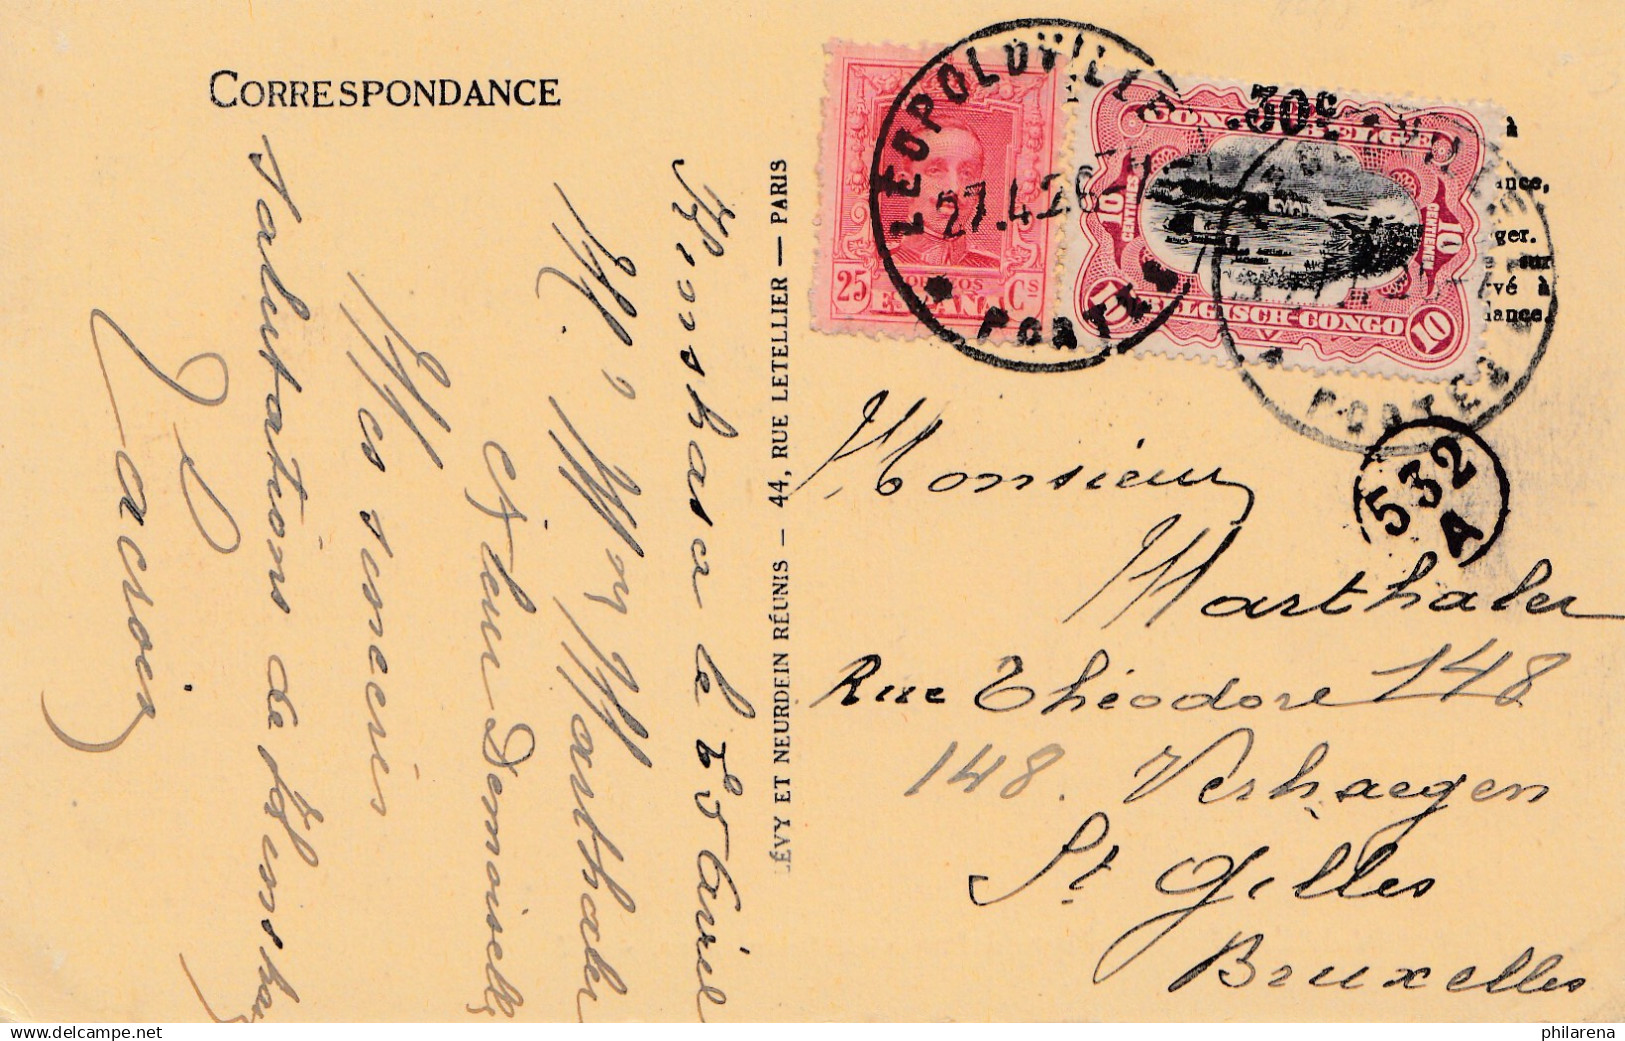 CORRESPONDANCE
Kinshasa le 26 Avril
M. Mme Marthaler
et leur Demoiselle
Mes sincères
salutations de Kinshasa
Lacroix
LÉVY ET NEURDEIN RÉUNIS — 44, RUE LETELLIER — PARIS
LEOPOLDVILLE
27.4.26
POSTES
25 Cs
CORREOS
ESPAÑA
30c
CONGO BELGE
10 CENTIMES
10 CENTIEMEN
10 BELGISCH-CONGO 10
POSTES
à
ance,
ger.
sur
vé à
lance.
532
A
Monsieur
Marthaler
Rue Théodore 148
148. Verhaegen
St Gilles
Bruxelles
philarena.delcampe.net
philarena